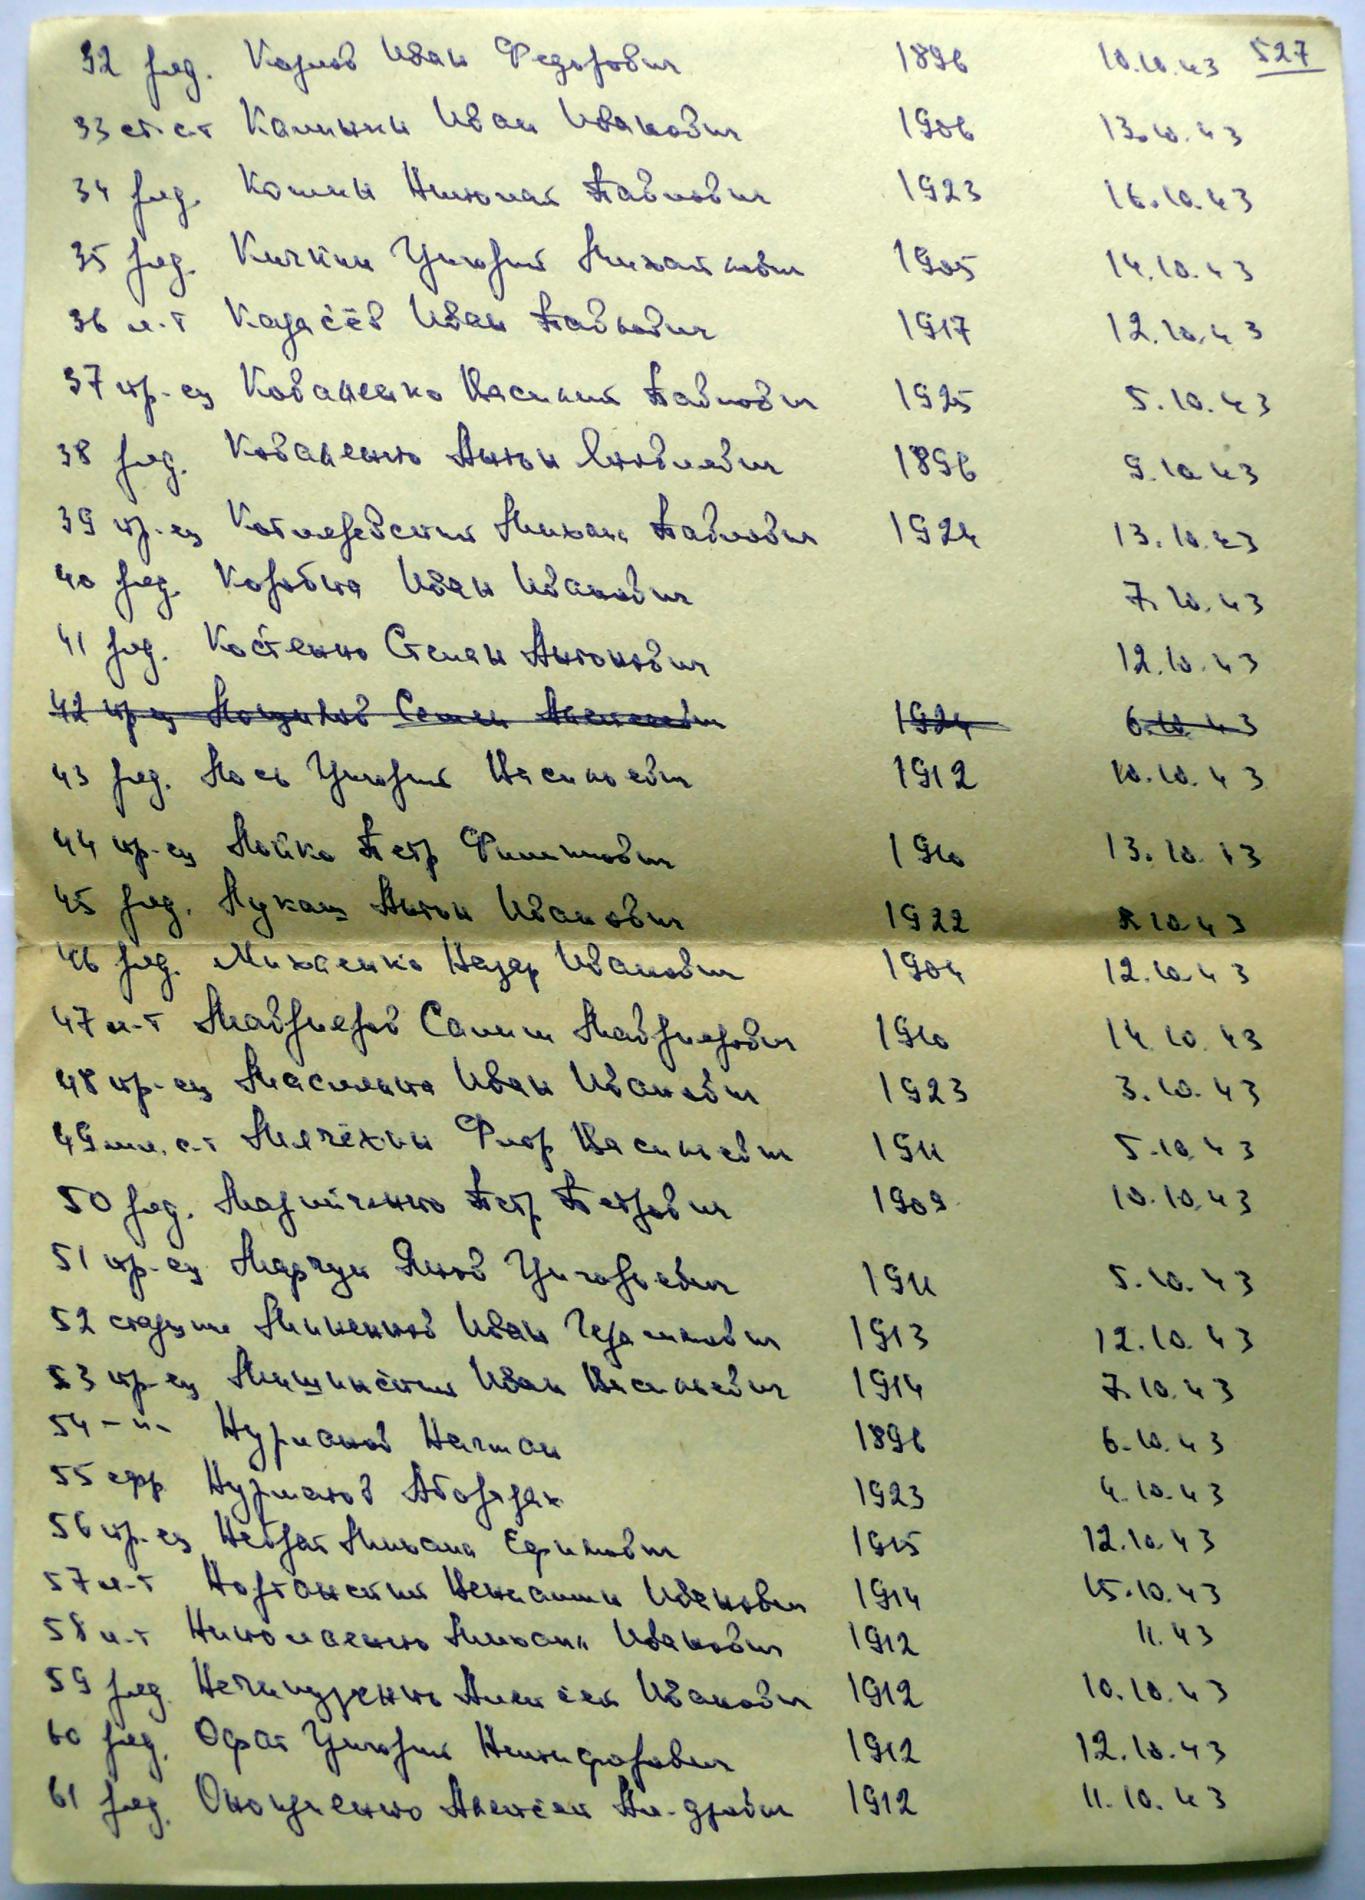 32 ряд. Карпов Иван Федорович 1896 10.10.43 527
33 ст. с-т Калинин Иван Иванович 1906 13.10.43
34 ряд. Кошин Николай Павлович 1923 16.10.43
35 ряд. Кичкин Григорий Михайлович 1905 14.10.43
36 л-т Иван Павлович 1917 12.10.43
37 кр-ец Коваленко Василий Павлович 1925 5.10.43
38 ряд. Коваленко Антон Яковлевич 1896 9.10.43
39 кр-ец Котляревский Михаил Павлович 1924 13.10.43
40 ряд. Коробка Иван Иванович 7.10.43
41 ряд. Костенко Степан Антонович 12.10.43
42 кр-ец Семен 1924 6.10.43
43 ряд. Лось Григорий Васильевич 1912 10.10.43
44 кр-ец Лойко Петр Филиппович 1910 13.10.43
45 ряд. Лукаш Антон Иванович 1922 10.43
46 ряд. Михаенко Назар Иванович 1904 12.10.43
47 л-т Салим 1910 14.10.43
48 кр-ец Иван Иванович 1923 3.10.43
49 мл. с-т Мячёхин Флор Васильевич 1911 5.10.43
50 ряд. Петр Петрович 1909 10.10.43
51 кр-ец Марчук Яков Григорьевич 1911 5.10.43
52 старшина Миненков Иван Герасимович 1913 12.10.43
53 кр-ец Мишинский Иван Васильевич 1914 7.10.43
54 -"- Нурманов 1896 6.10.43
55 ефр Нурматов 1923 4.10.43
56 кр-ец Небрат Михаил Ефимович 1915 12.10.43
57 л-т Вениамин Иванович 1914 15.10.43
58 л-т Николаенко Михаил Иванович 1912 11.43
59 ряд. Нечипуренко Алексей Иванович 1912 10.10.43
60 ряд. Офат Григорий Никифорович 1912 12.10.43
61 ряд. Онопченко Алексей Ал-дрович 1912 11.10.43